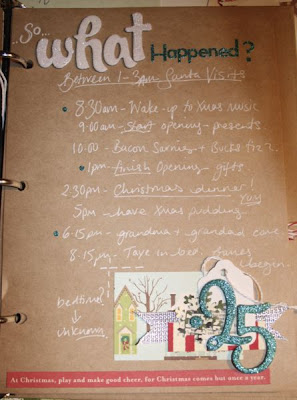 ...So...
what
Happened?
Between 1-3am Santa Visits
8:30am - Wake up to Xmas music
9:00am - Start opening - presents
10:00 - Bacon Sarnies + Bucks Fizz.
1pm - finish Opening - gifts
2:30pm - Christmas dinner!
YUM
5pm - have Xmas pudding.
6:15pm - grandma + grandad
8:15pm - in bed, games
begin.
bedtime
unknown
25
At Christmas, play and make good cheer, for Christmas comes but once a year.